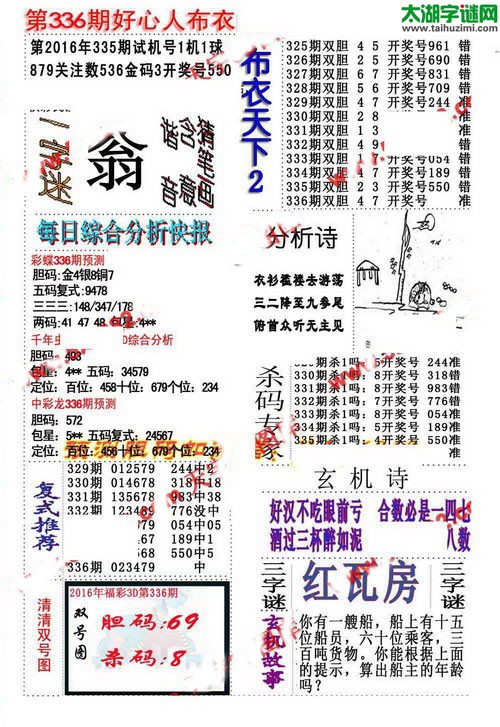 第336期好心人布衣
太湖字谜网
www.taihuzimi.com
第2016年335期试机号1机1球
879关注数536金码3开奖号550
翁
每日综合分析快报
彩蝶336期预测
胆码:金4银8铜7
五码复式:9478
三三三:148/347/178
两码:41 47 48 包星:4**
综合分析
包星:4** 五码:34579
定位:百位:458十位:679个位:234
中彩龙336期预测
胆码:572
包星:5** 五码复式:24567
定位:百位:456十位:679个位:234
复式推荐
329期 012579 244中2
330期 014678 318中18
331期 135678 983中38
332期 123489 776没中
054中05
189中
550中
336期 023479
清清双号图
2016年福彩3D第336期
双号图
胆码:69
杀码:8
布衣天下2
325期双胆 4 5 开奖号961 错
326期双胆 2 5 开奖号690 错
327期双胆 5 6 开奖号831 错
328期双胆 4 7 开奖号709 错
329期双胆 4 7 开奖号244 准
330期双胆 2 8
331期双胆 1 3 错
332期双胆 4 9 错
333期双胆 开奖号054 错
334期双胆 4 7 开奖号189 错
335期双胆 2 3 开奖号550 错
336期双胆 4 7 开奖号
分析诗
衣衫褴褛去游荡
三二降至九参尾
俯首众听天主见
杀码专家
329期杀1吗: 5开奖号 244准
330期杀1吗: 开奖号 318错
331期杀1吗: 开奖号 983错
332期杀1吗: 开奖号 776错
333期杀1吗: 开奖号 054准
334期杀1吗: 5开奖号 189准
335期杀1吗: 4开奖号 550准
玄机诗
好汉不吃眼前亏 合数必是一四七
酒过三杯醉如泥 八数
三字谜
红瓦房
三字谜
玄机故事
你有一艘船，船上有十五
位船员，六十位乘客，三
百吨货物。你能根据上面
的提示，算出船主的年龄
吗?